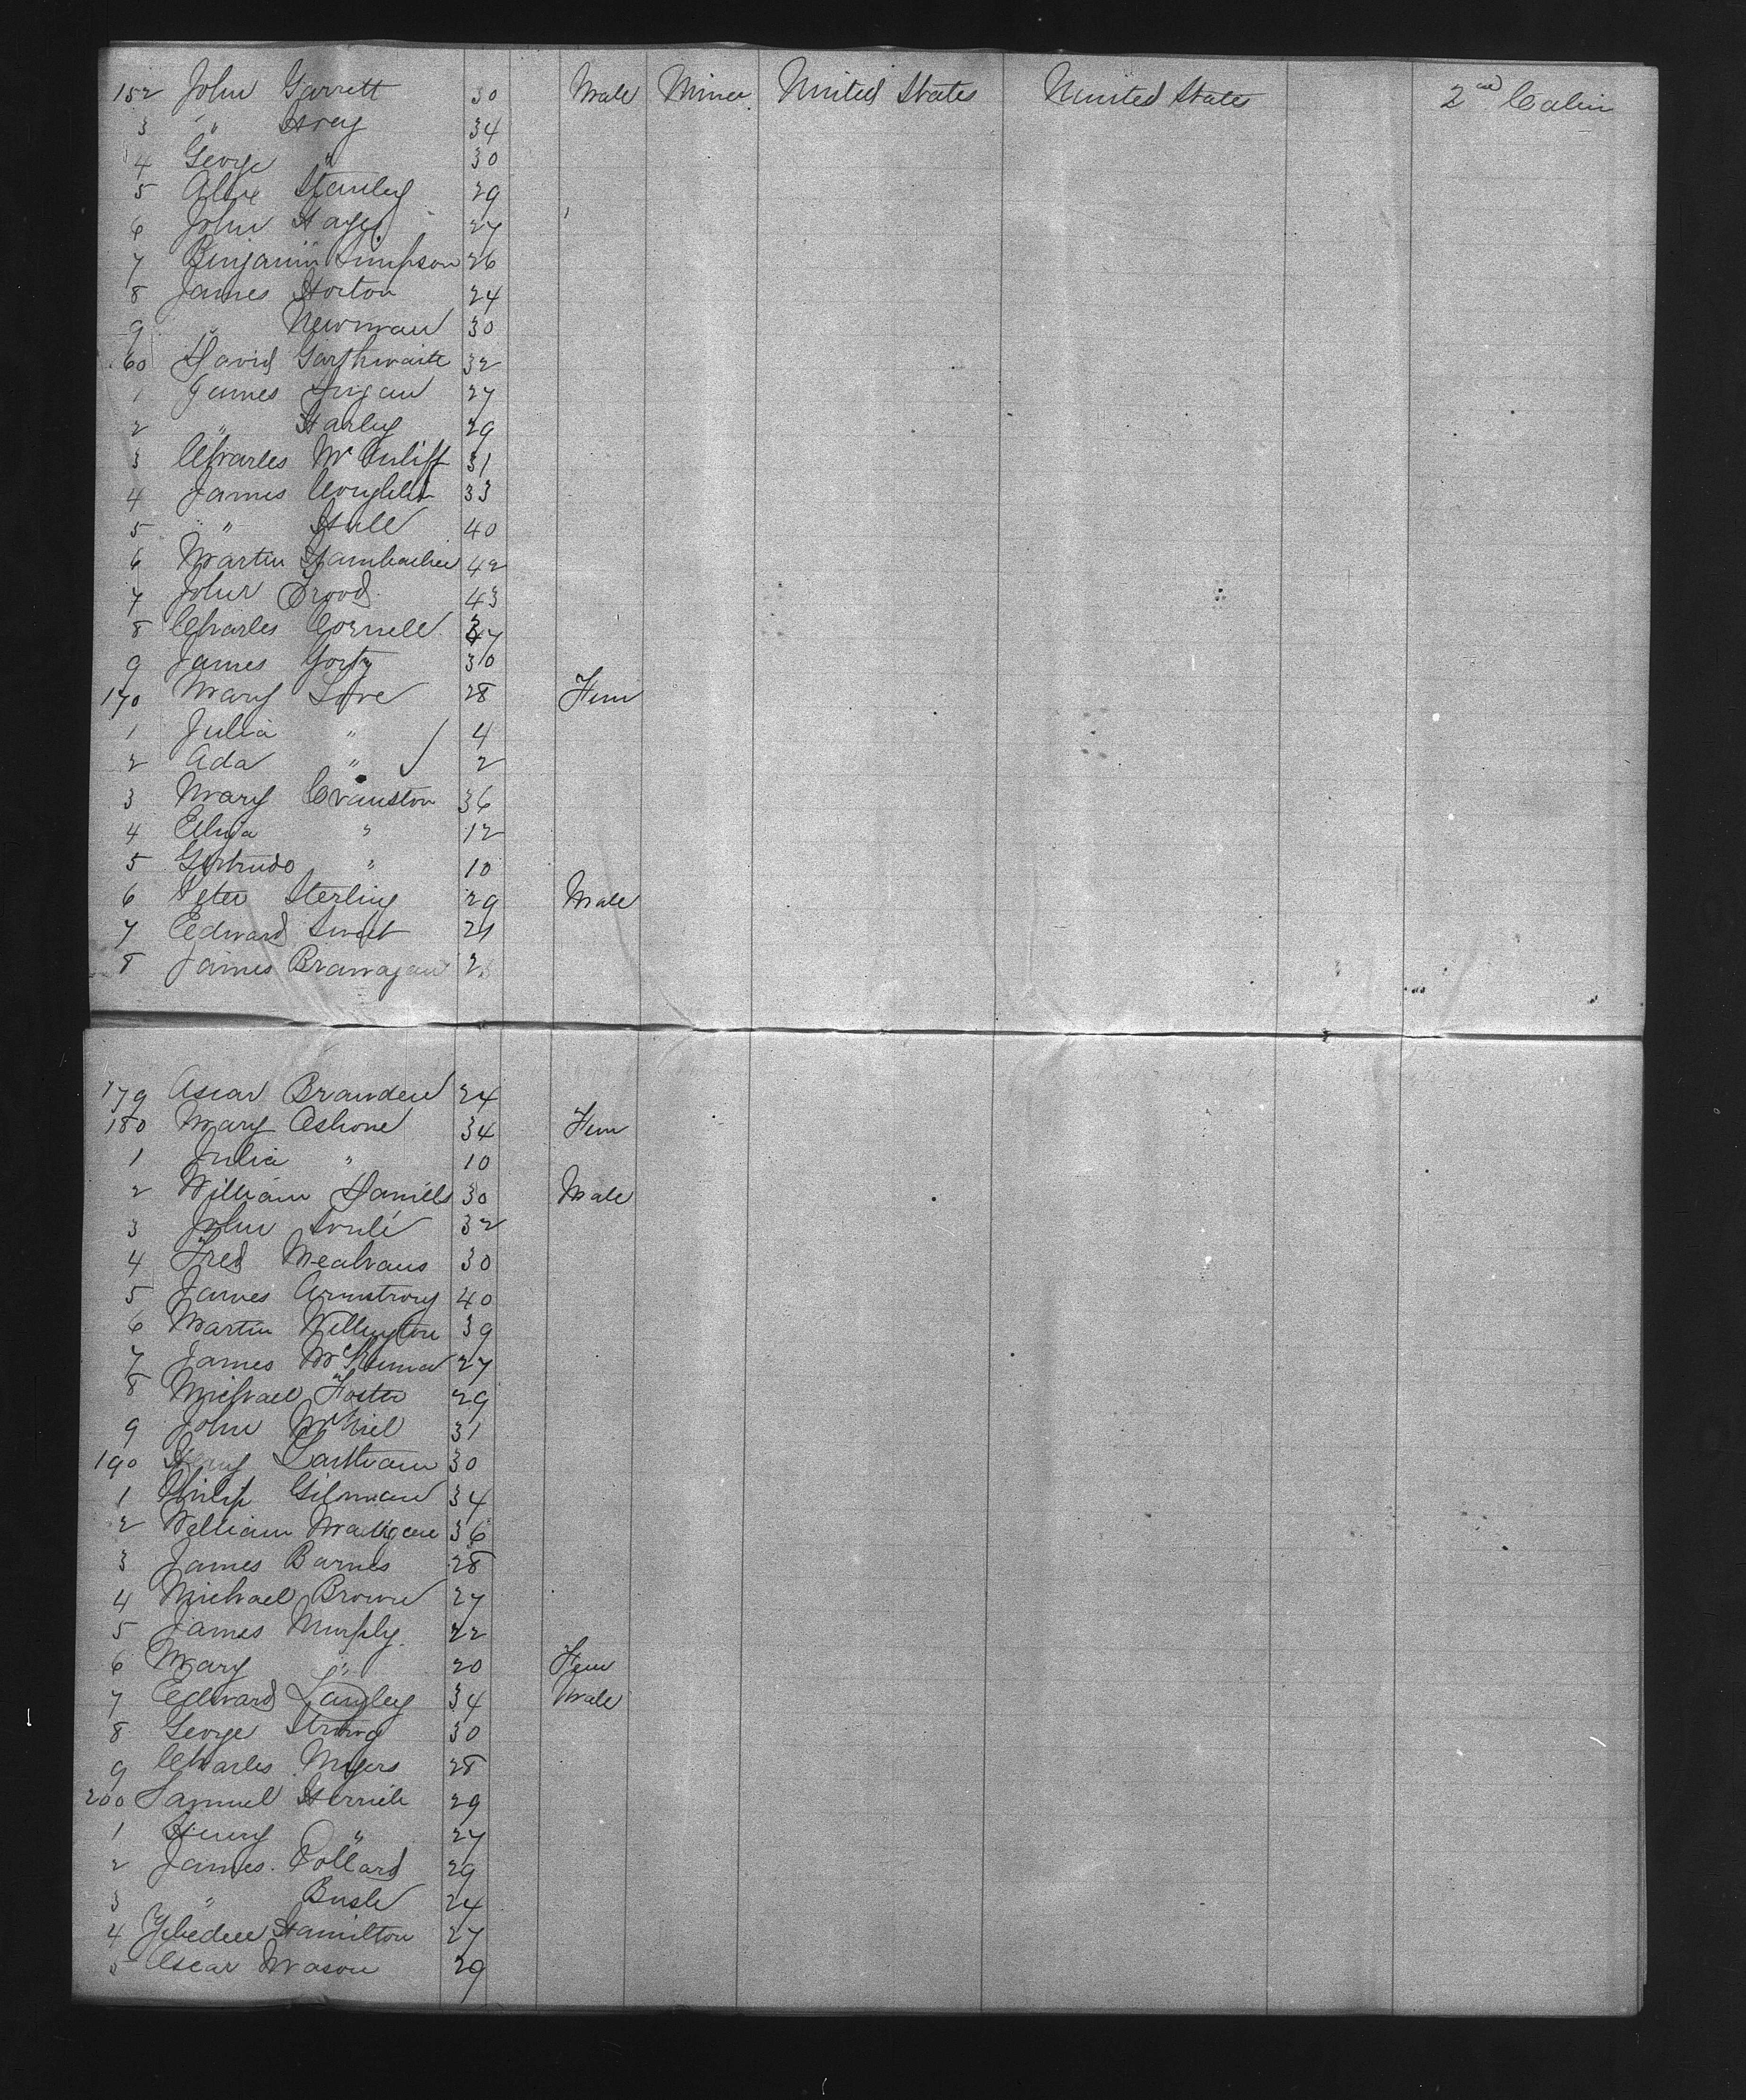 152 John Garrett 30 Male Miner United States United States 2nd Cabin
3 " Hoey 34
4 George " 30
5 Alex Stanley 29
6 John Hayes 27
7 Benjamin Simpson 26
8 James Horton 24
9 " Newman 30
60 David Garthwaite 32
1 James Sugan 27
2 " Harley 29
3 Charles McAuliff 31
4 James Coughlin 33
5 " Hull 40
6 Martin 42
7 John Orood 43
8 Charles Cornell
9 James Gorty 30
170 Mary Love 28 Fem
1 Julia " 4
2 Ada " 2
3 Mary Cranston 36
4 Eliza " 12
5 Gertrude " 10
6 Peter Sterling 29 Male
7 Edward Sweet 21
8 James Branagan
179 Ascar Branden 24
180 Mary Ashone 34 Fem
1 Julia " 10
2 William Daniels 30 Male
3 John Soulé 32
4 Fred Mealvans 30
5 James Armstrong 40
6 Martin Wellington 39
7 James McKenna 27
8 Michael Foster 29
9 John McNiel 31
190 Henry Lartham 30
1 Philip Gilman 34
2 William 36
3 James Barnes 28
4 Michael Brown 27
5 James Murphy 22
6 Mary " 20 Fem
7 Edward Langley 34 Male
8 George Strong 30
9 Charles Myers 28
200 Samuel Herrick 29
1 Henry " 27
2 James Pollard 29
3 " Bush 24
4 Zebedee Hamilton 27
5 Ascar Mason 29